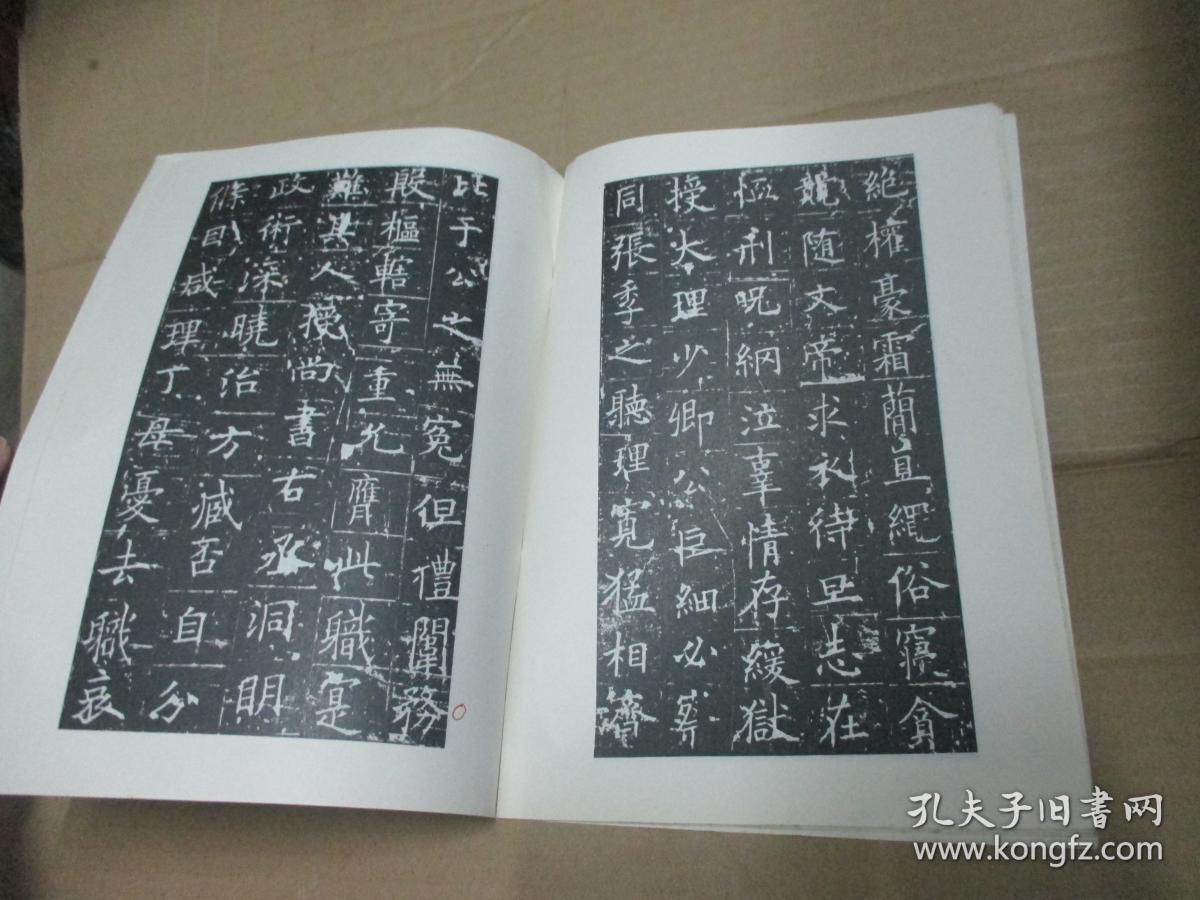 絶權豪霜簡直繩俗寢貪
競随文帝求礼待旦志在
恤刑呪網泣辜情存緩獄
授大理少卿公巨細必察
同張季之聽理寬猛相濟
比于公之無冤但禮闈務
殷樞轄寄重允膺此職寔
難其人授尚書右丞洞明
政術深曉治方臧否自分
條目咸理丁母憂去職哀
孔夫子旧書网
www.kongfz.com